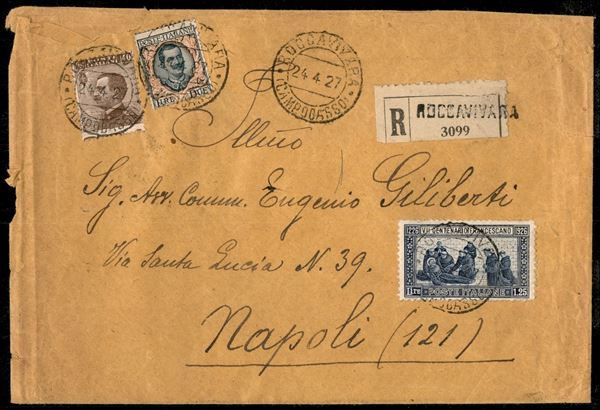 40
POSTE ITALIANE
LIRE DUE
ROCCAVIVARA
24.4.27
(CAMPOBASSO)
R ROCCAVIVARA
3099
Illmo
Sig. Avv. Comm. Eugenio Giliberti
Via Santa Lucia N. 39.
Napoli (121)
1226 VII CENTENARIO FRANCESCANO 1926
lire POSTE ITALIANE 1.25